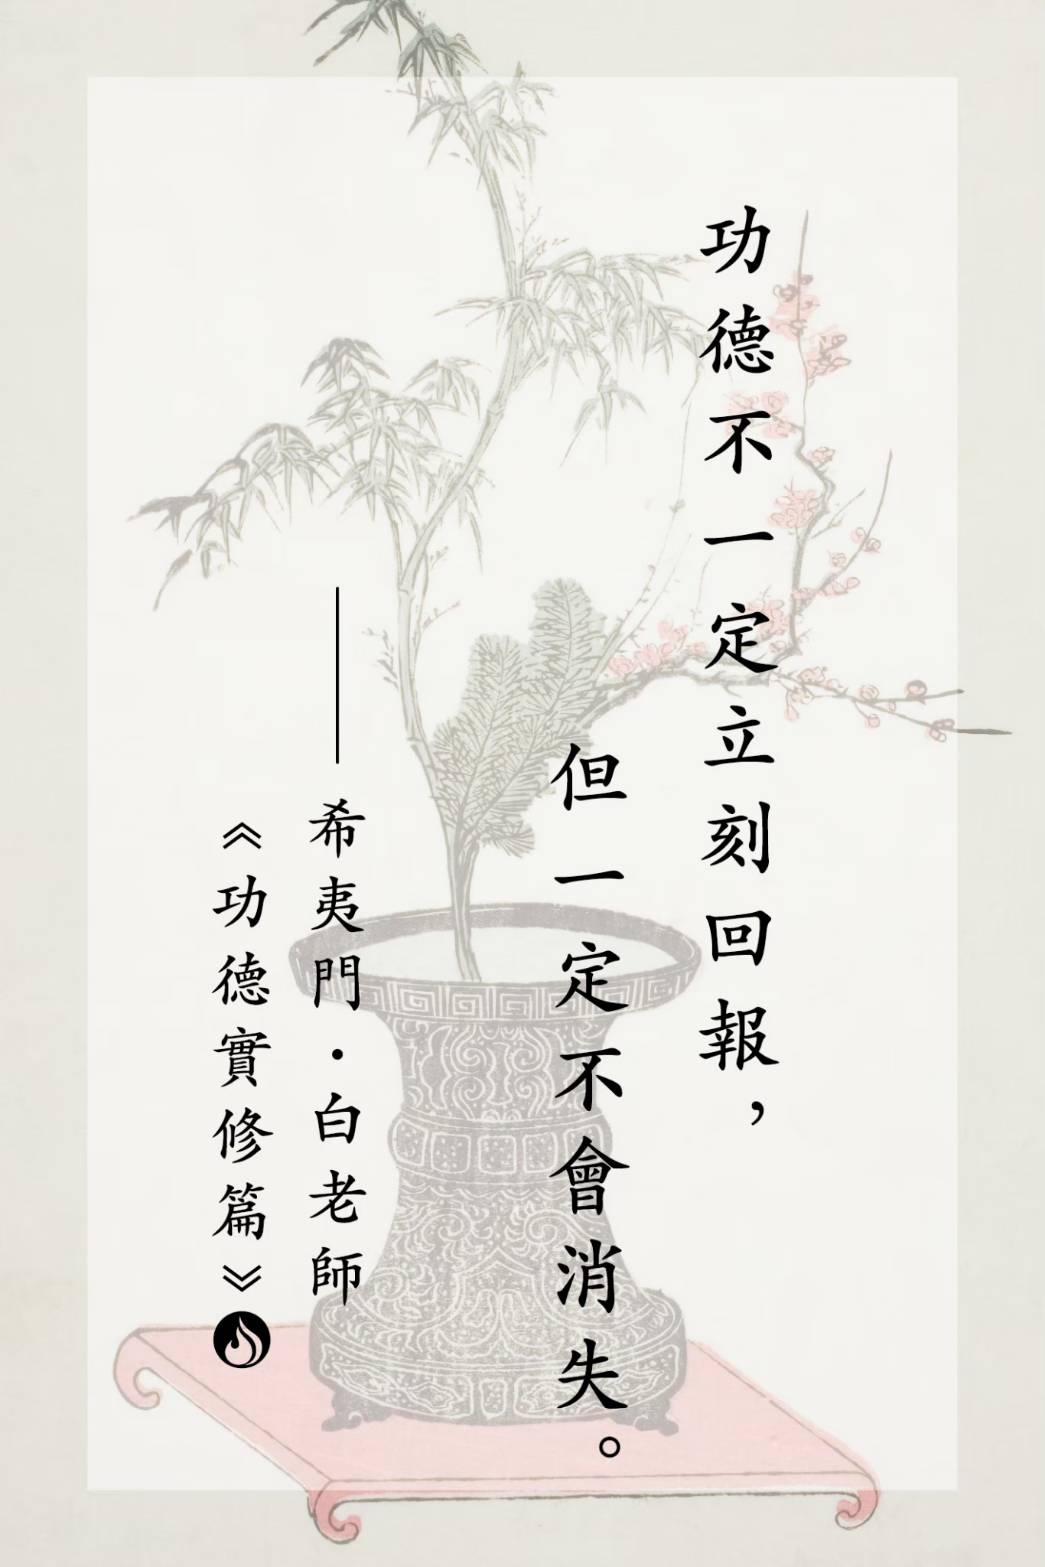 功德不一定立刻回報，
但一定不會消失。
——希夷門·白老師
《功德實修篇》